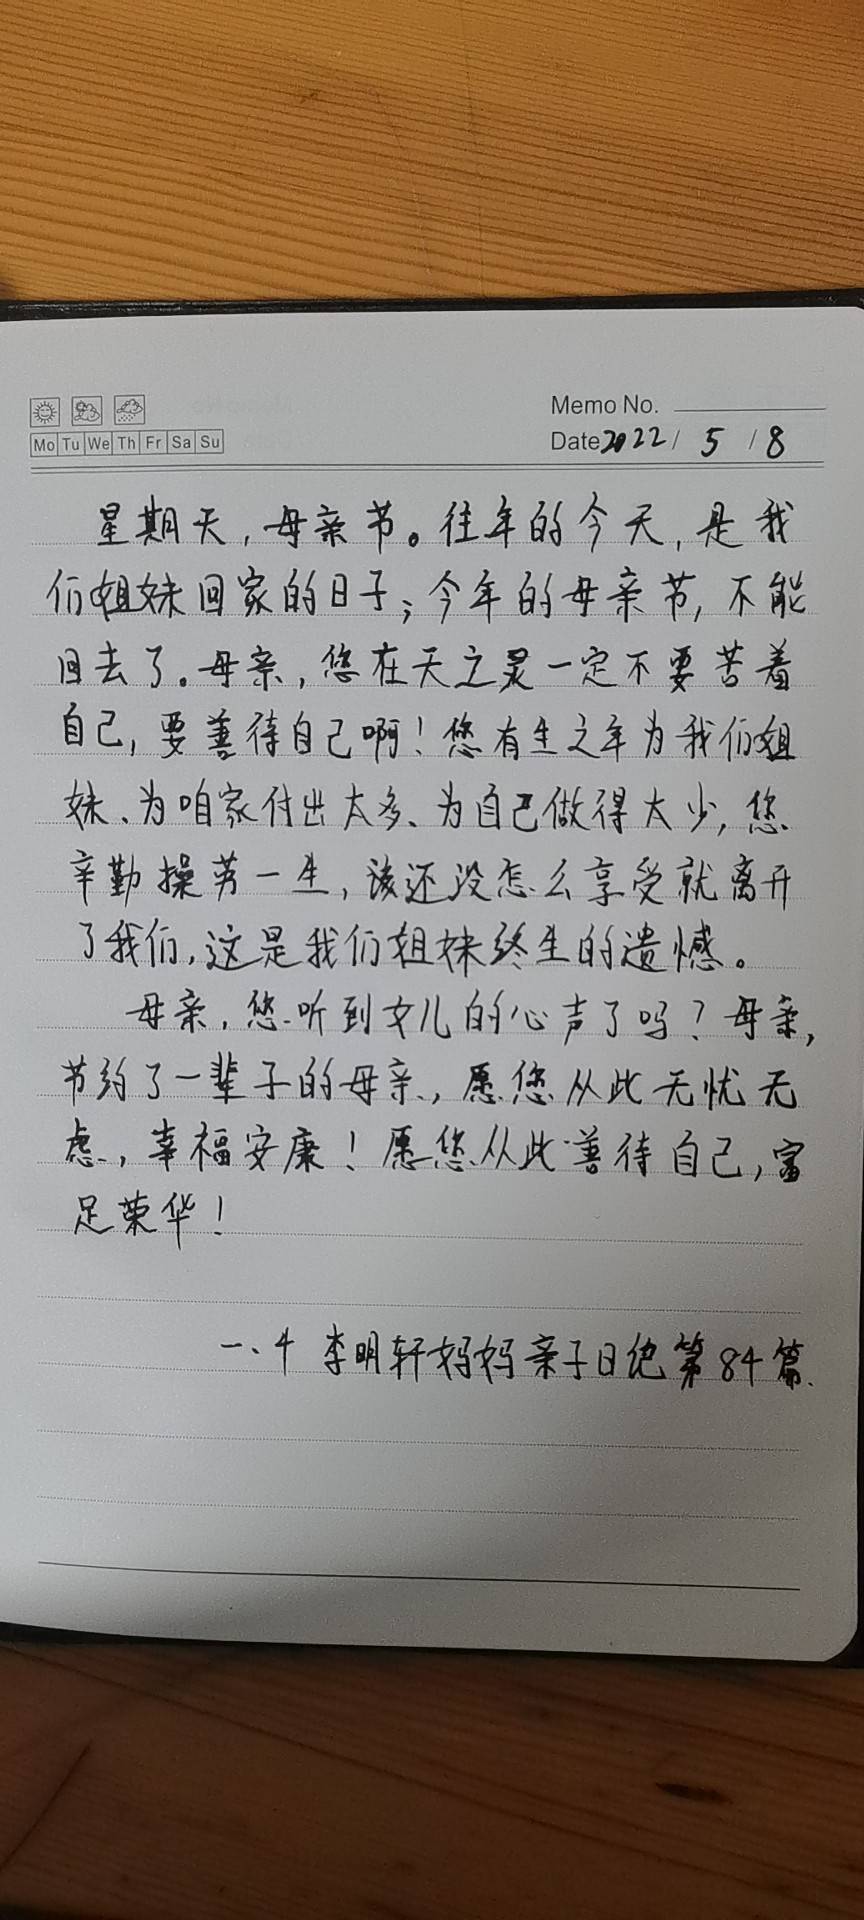 Memo No.
Mo Tu We Th Fr Sa Su
Date 2022 / 5 / 8
星期天，母亲节。往年的今天，是我
们姐妹回家的日子；今年的母亲节，不能
回去了。母亲，您在天之灵一定不要苦着
自己，要善待自己啊！您有生之年为我们姐
妹、为咱家付出太多、为自己做得太少，您
辛勤操劳一生，该还没怎么享受就离开
了我们，这是我们姐妹终生的遗憾。
母亲，您听到女儿的心声了吗？母亲，
节约了一辈子的母亲，愿您从此无忧无
虑，幸福安康！愿您从此善待自己，富
足荣华！
一、4 李明轩妈妈亲子日记第84篇.